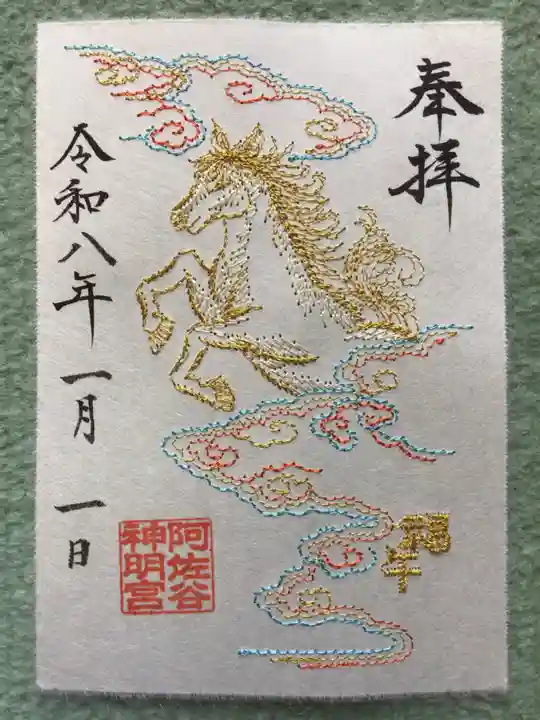 奉拝
令和八年一月一日
阿佐谷
神明宮